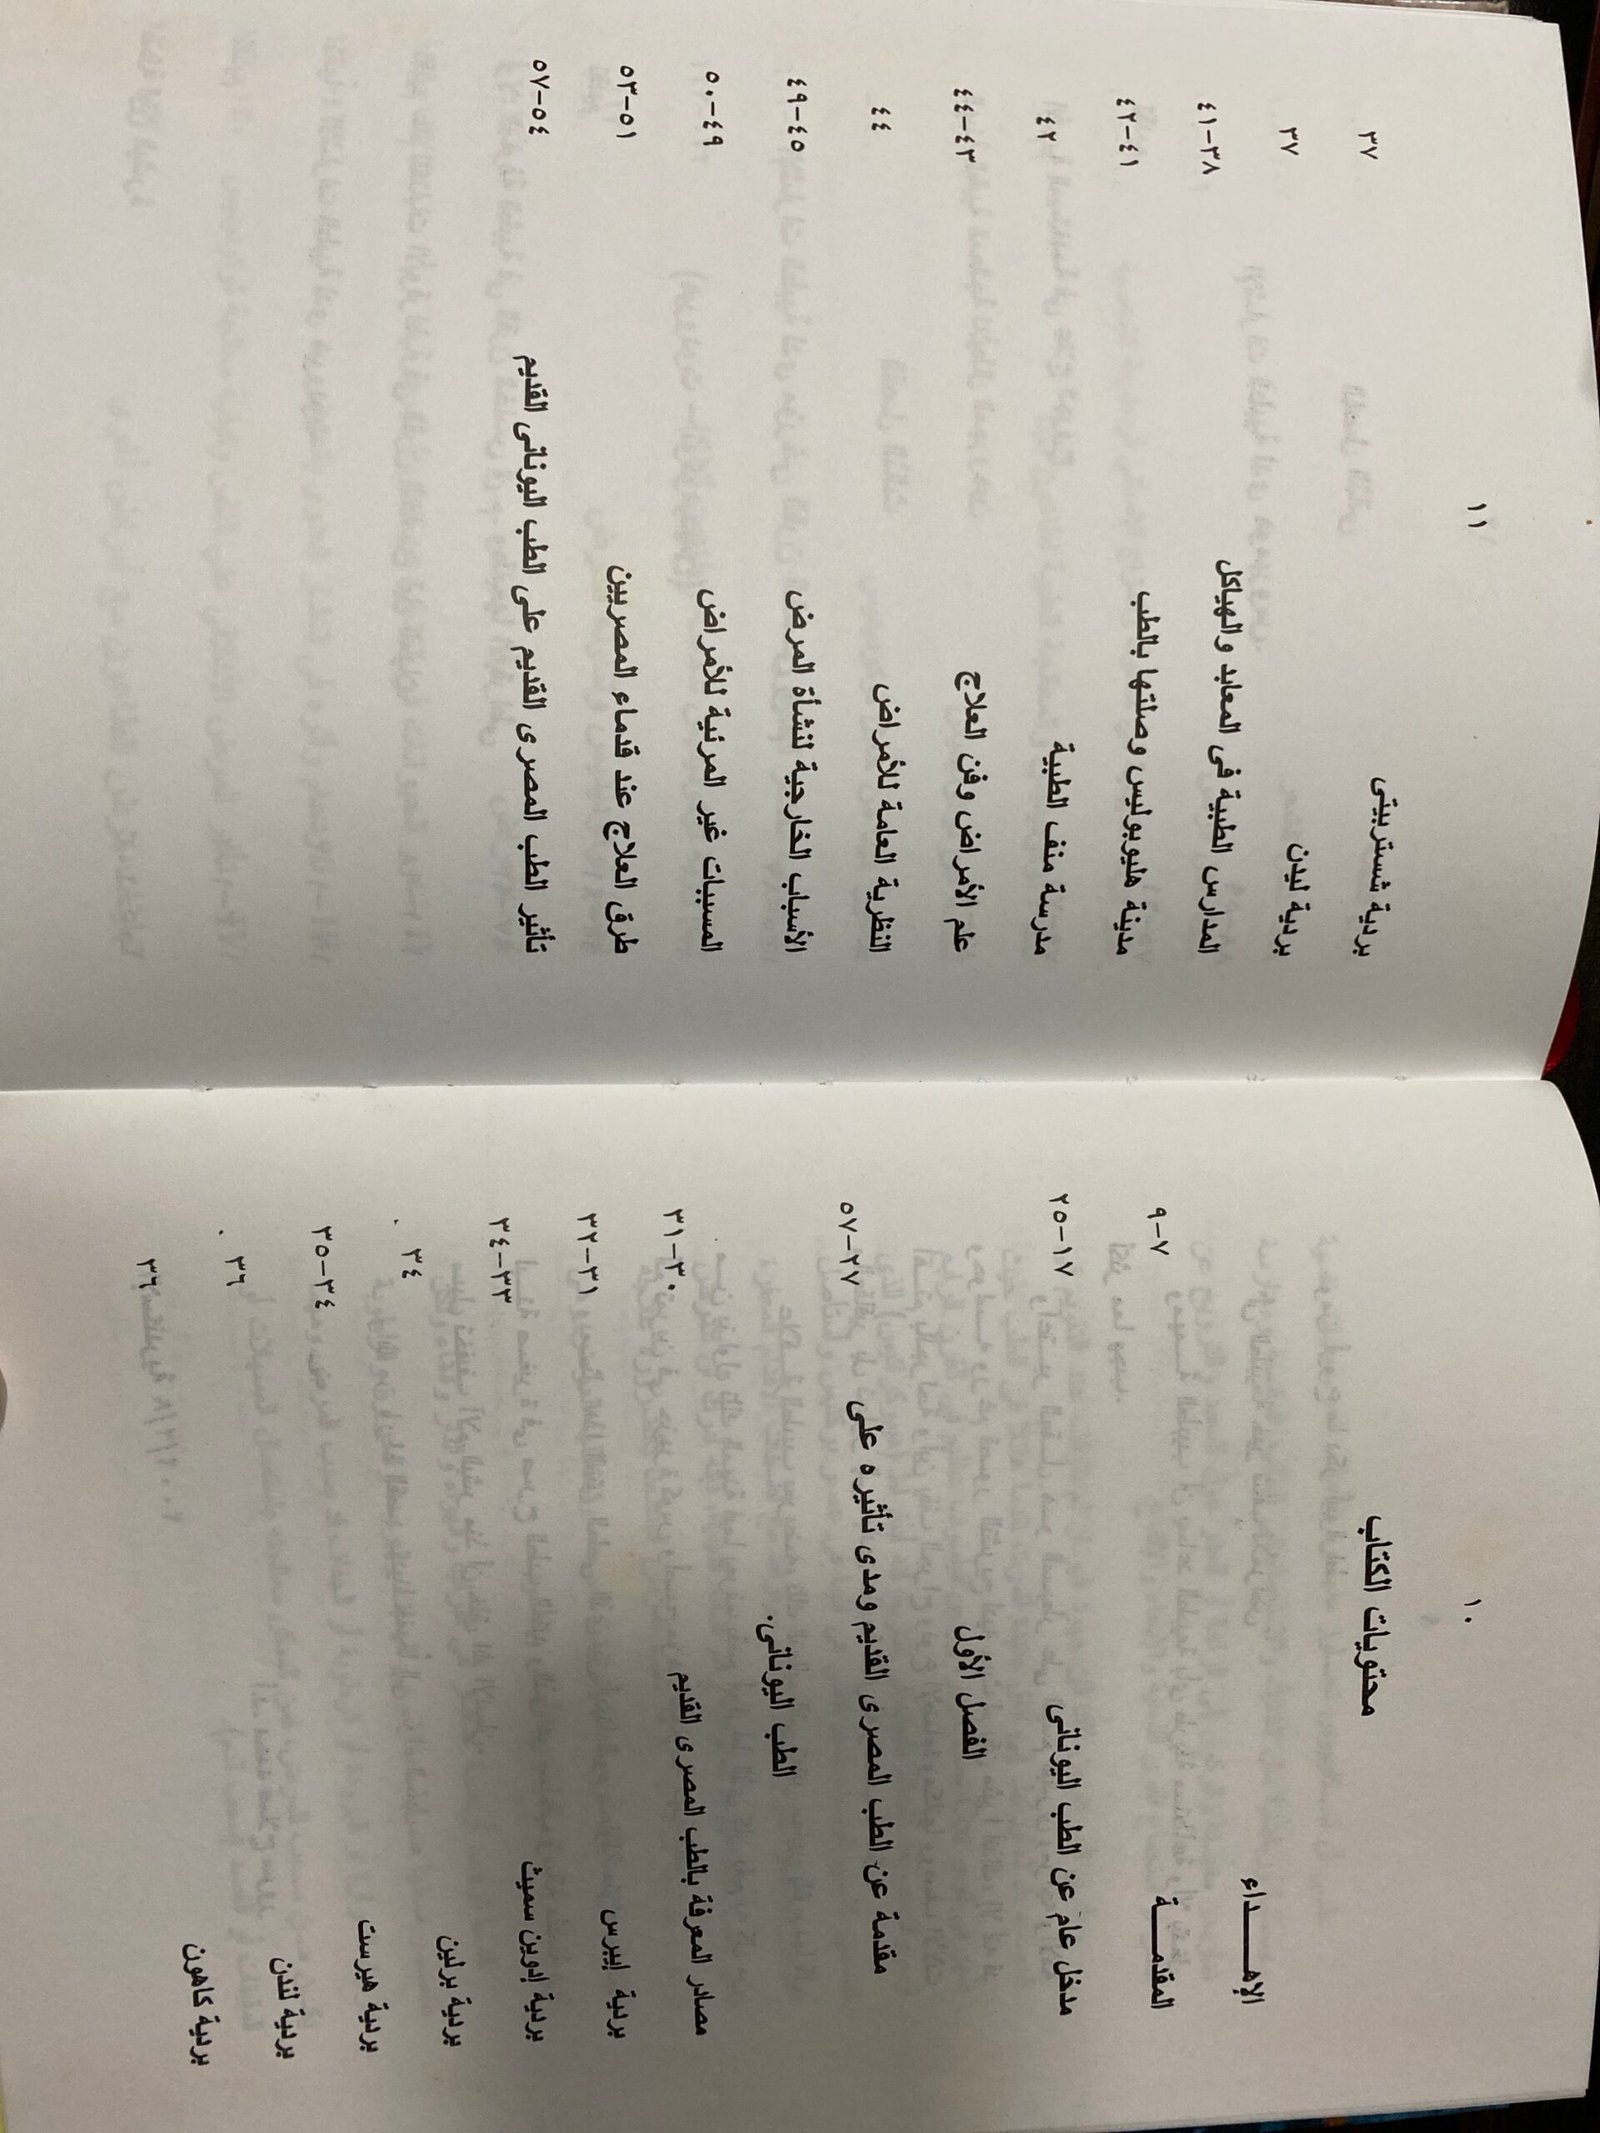 ١٠
محتويات الكتاب
الإهـــــداء
المقدمـــــة ٧-٩
مدخل عام عن الطب اليونانى ١٧-٢٥
الفصل الأول
مقدمة عن الطب المصرى القديم ومدى تأثيره على ٢٧-٥٧
الطب اليونانى.
مصادر المعرفة بالطب المصرى القديم ٣٠-٣١
بردية إيبرس ٣١-٣٢
بردية إدوين سميث ٣٣-٣٤
بردية برلين ٣٤
بردية هيرست ٣٤-٣٥
بردية لندن ٣٦
بردية كاهون ٣٦
١١
بردية شستربيتى ٣٧
بردية ليدن ٣٧
المدارس الطبية فى المعابد والهياكل ٣٨-٤١
مدينة هليوبوليس وصلتها بالطب ٤١-٤٢
مدرسة منف الطبية ٤٢
علم الأمراض وفن العلاج ٤٣-٤٤
النظرية العامة للأمراض ٤٤
الأسباب الخارجية لنشأة المرض ٤٥-٤٩
المسببات غير المرئية للأمراض ٤٩-٥٠
طرق العلاج عند قدماء المصريين ٥١-٥٣
تأثير الطب المصرى القديم على الطب اليونانى القديم ٥٤-٥٧